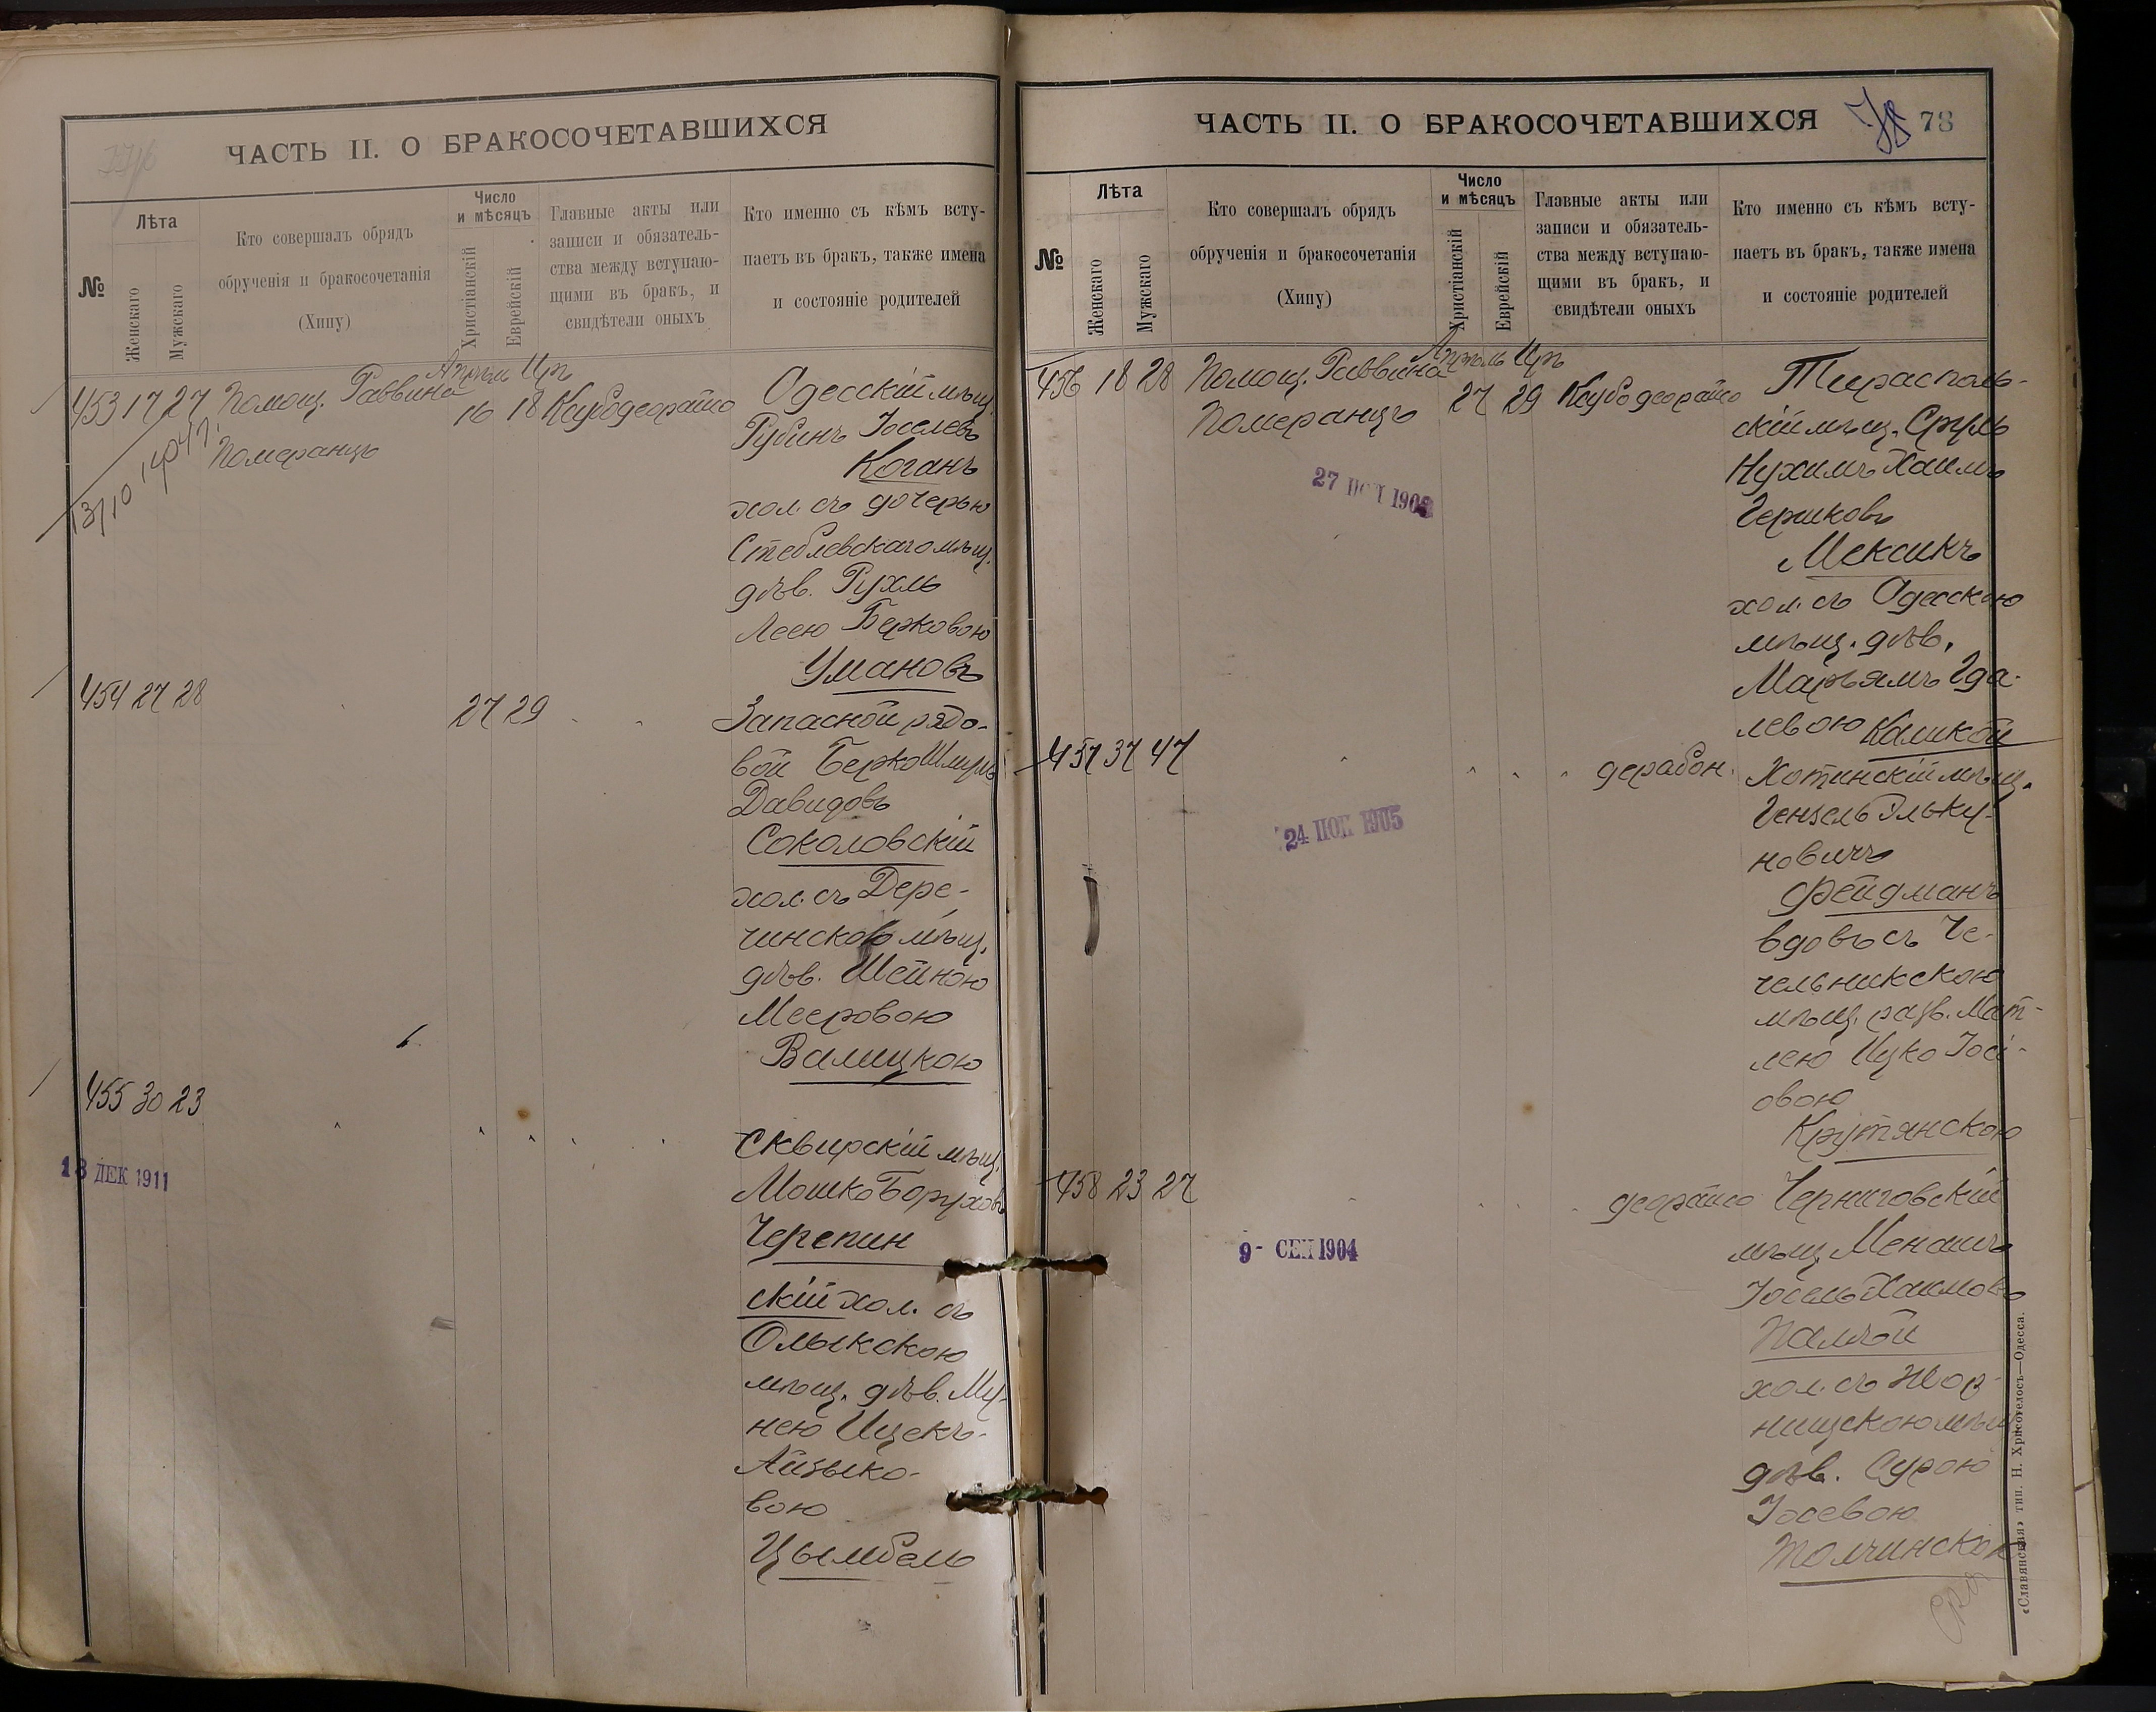 ЧАСТЬ II. О БРАКОСОЧЕТАВШИХСЯ
№
Лѣта
Женскаго
Мужскаго
Кто совершалъ обрядъ
обрученія и бракосочетанія
(Хипу)
Число
и мѣсяцъ
Христіанскій
Еврейскій
Главные акты или
записи и обязатель-
ства между вступаю-
щими въ бракъ, и
свидѣтели оныхъ
Кто именно съ кѣмъ всту-
паетъ въ бракъ, также имена
и состояніе родителей
453 17 27 Помощ. Раввина
Померанцъ
Апрѣль Ир
16 18
Одесскій мѣщ.
Рубинъ Іоселевъ
Коганъ
хол. съ дочерью
Стеблевскаго мѣщ.
дѣв. Рухль
Леею Берковою
Умановъ
454 27 28
27 29
Запасной рядо-
вой Берко Шмуль
Давидовъ
Соколовскій
хол. съ Дере-
чинскою мѣщ.
дѣв. Шейною
Мееровою
Валицкою
455 30 23
13 ДЕК 1911
Сквирскій мѣщ.
Мошко Боруховъ
Черепин
скій хол. съ
Олыкскою
мѣщ. дѣв. Му-
нею Ицекъ-
Айзыко-
вою
Цымбаль
ЧАСТЬ II. О БРАКОСОЧЕТАВШИХСЯ
78 78
№
Лѣта
Женскаго
Мужскаго
Кто совершалъ обрядъ
обрученія и бракосочетанія
(Хипу)
Число
и мѣсяцъ
Христіанскій
Еврейскій
Главные акты или
записи и обязатель-
ства между вступаю-
щими въ бракъ, и
свидѣтели оныхъ
Кто именно съ кѣмъ всту-
паетъ въ бракъ, также имена
и состояніе родителей
456 18 28 Помощ. Раввина
Померанцъ
Апрѣль Ир
27 29
Тирасполь-
скій мѣщ. Сруль
Нухимъ Хаимъ
Гершковъ
Мексикъ
хол. съ Одесскою
мѣщ. дѣв.
Марьямъ Гда-
левою
457 37 47
24 НОЯ 1905
Хотинскій мѣщ.
Гензель
новичъ
Фейдманъ
вдовъ съ Че-
чельникскою
мѣщ. разв. Мат-
лею Ицко Іосі-
овою
Крутянскою
458 23 27
9- СЕН 1904
Черниговскій
мѣщ. Менашъ
Іосель Хаимовъ
Палѣй
хол. съ Жор-
нищскою мѣщ.
дѣв. Сурою
Іосевою
Толчинскою
«Славянская» тип. Н. Хрисогелосъ—Одесса.